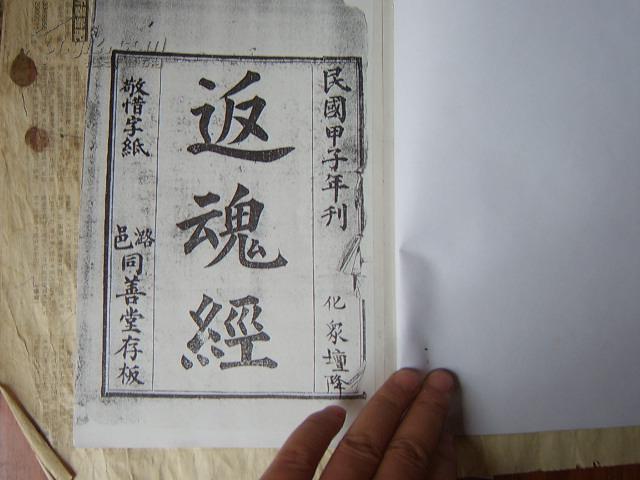 民國甲子年刊
化衆壇降
返魂經
敬惜字紙
潞邑同善堂存板